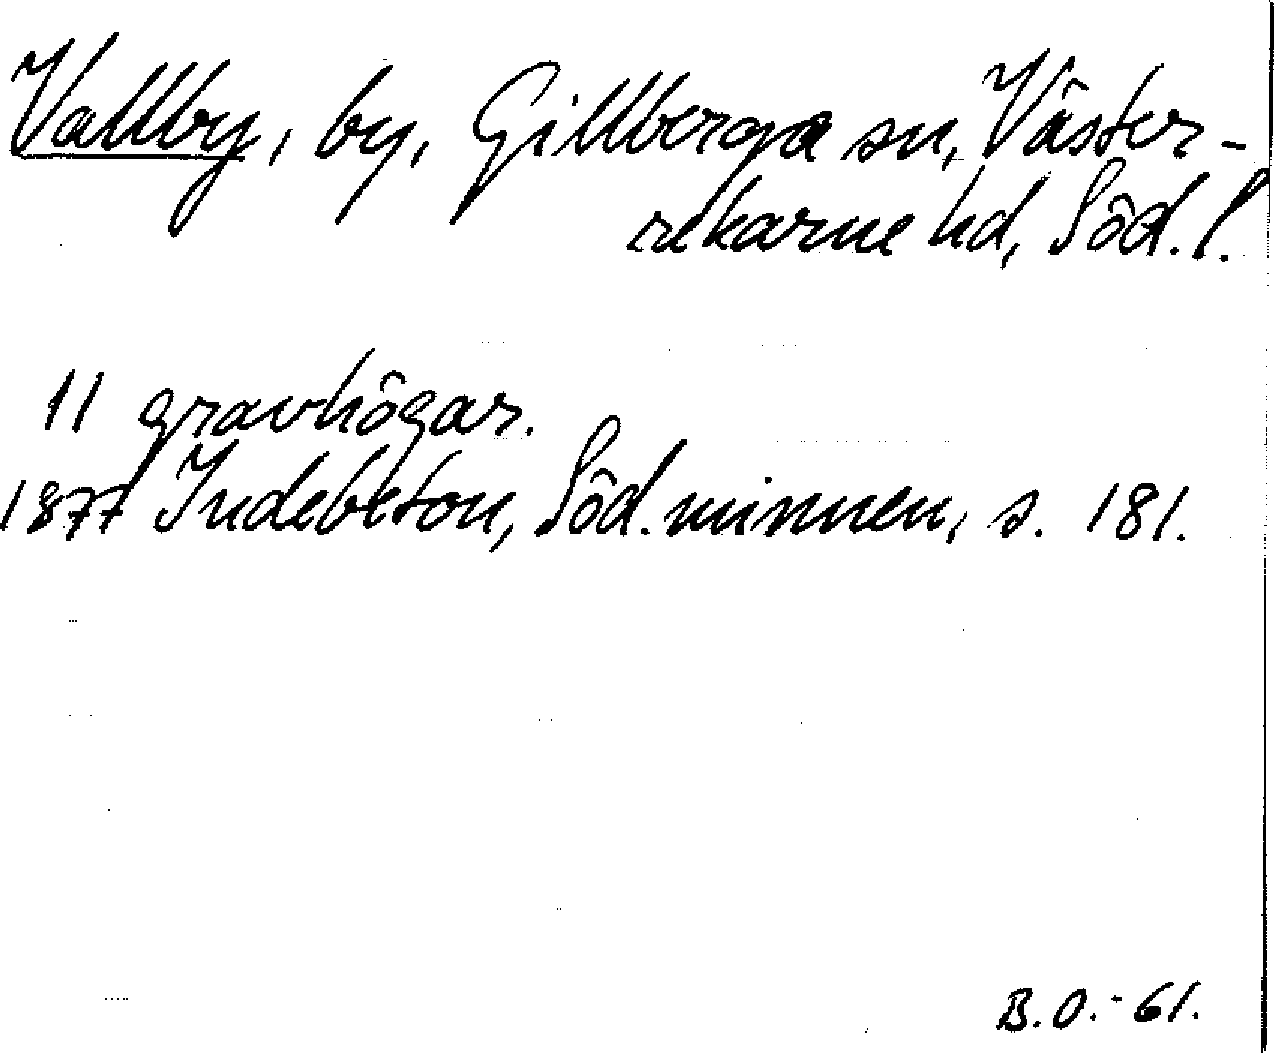 Vallby, by, Gillberga sn, Väster-
rekarne hd, Söd. l.
11 gravhögar.
1877 Indebetou, Söd. minnen, s. 181.
B.O.-61.